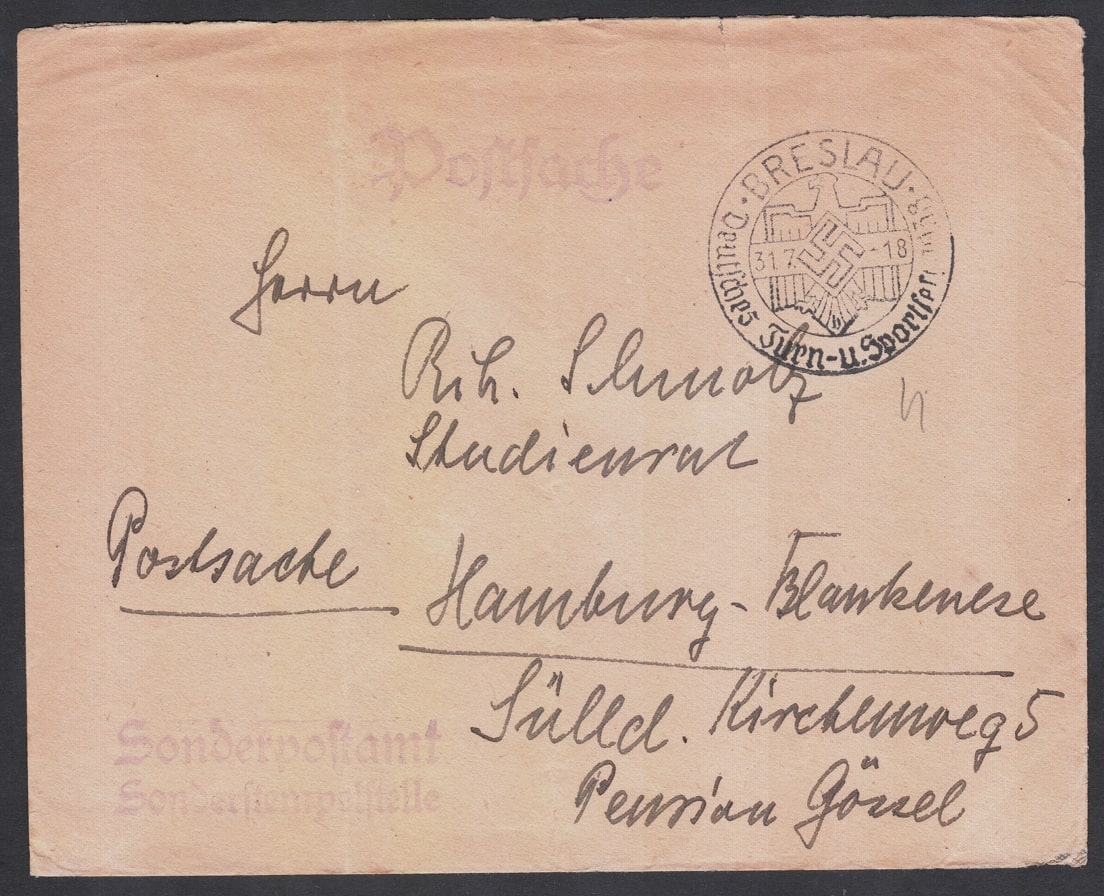 Postsache
BRESLAU
Deutsches Turn-u. Sportfest
31 7. -18
Herrn
Rih. Schmolz
Studienrat
Postsache
Hamburg-Blankenese
Sülld. Kirchenweg 5
Pension Gössel
Sonderpostamt
Sonderstempelstelle